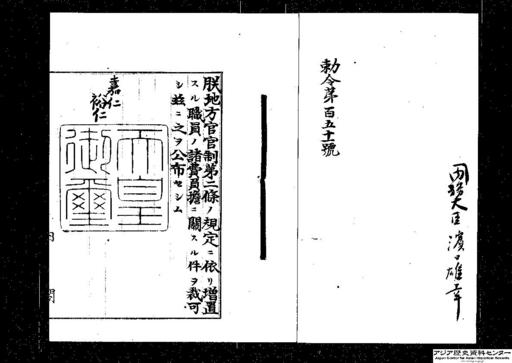 内務大臣濱口雄幸
勅令第百五十一號
朕地方官官制第二條ノ規定ニ依リ增置
スル職員ノ諸費負擔ニ關スル件ヲ裁可
シ玆ニ之ヲ公布セシム
嘉仁
裕仁
天皇御璽
内閣
アジア歴史資料センター
Japan Center for Asian Historical Records